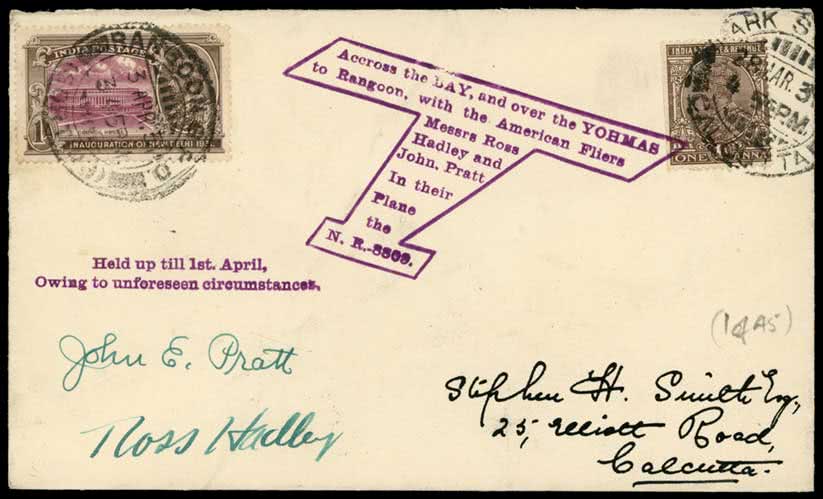 INDIA POSTAGE
INAUGURATION OF NEW DELHI 1931.
RANGOON
3 APR.
Accross the BAY, and over the YOHMAS
to Rangoon, with the American Fliers
Messrs Ross
Hadley and
John, Pratt
In their
Plane
the
N. R.-8809.
ARK S
MAR. 3
PM.
TA
ONE ANNA
Held up till 1st. April,
Owing to unforeseen circumstances.
John E. Pratt
Ross Hadley
(1dA5)
Stephen H. Smith Esq.,
25, Elliott Road,
Calcutta.